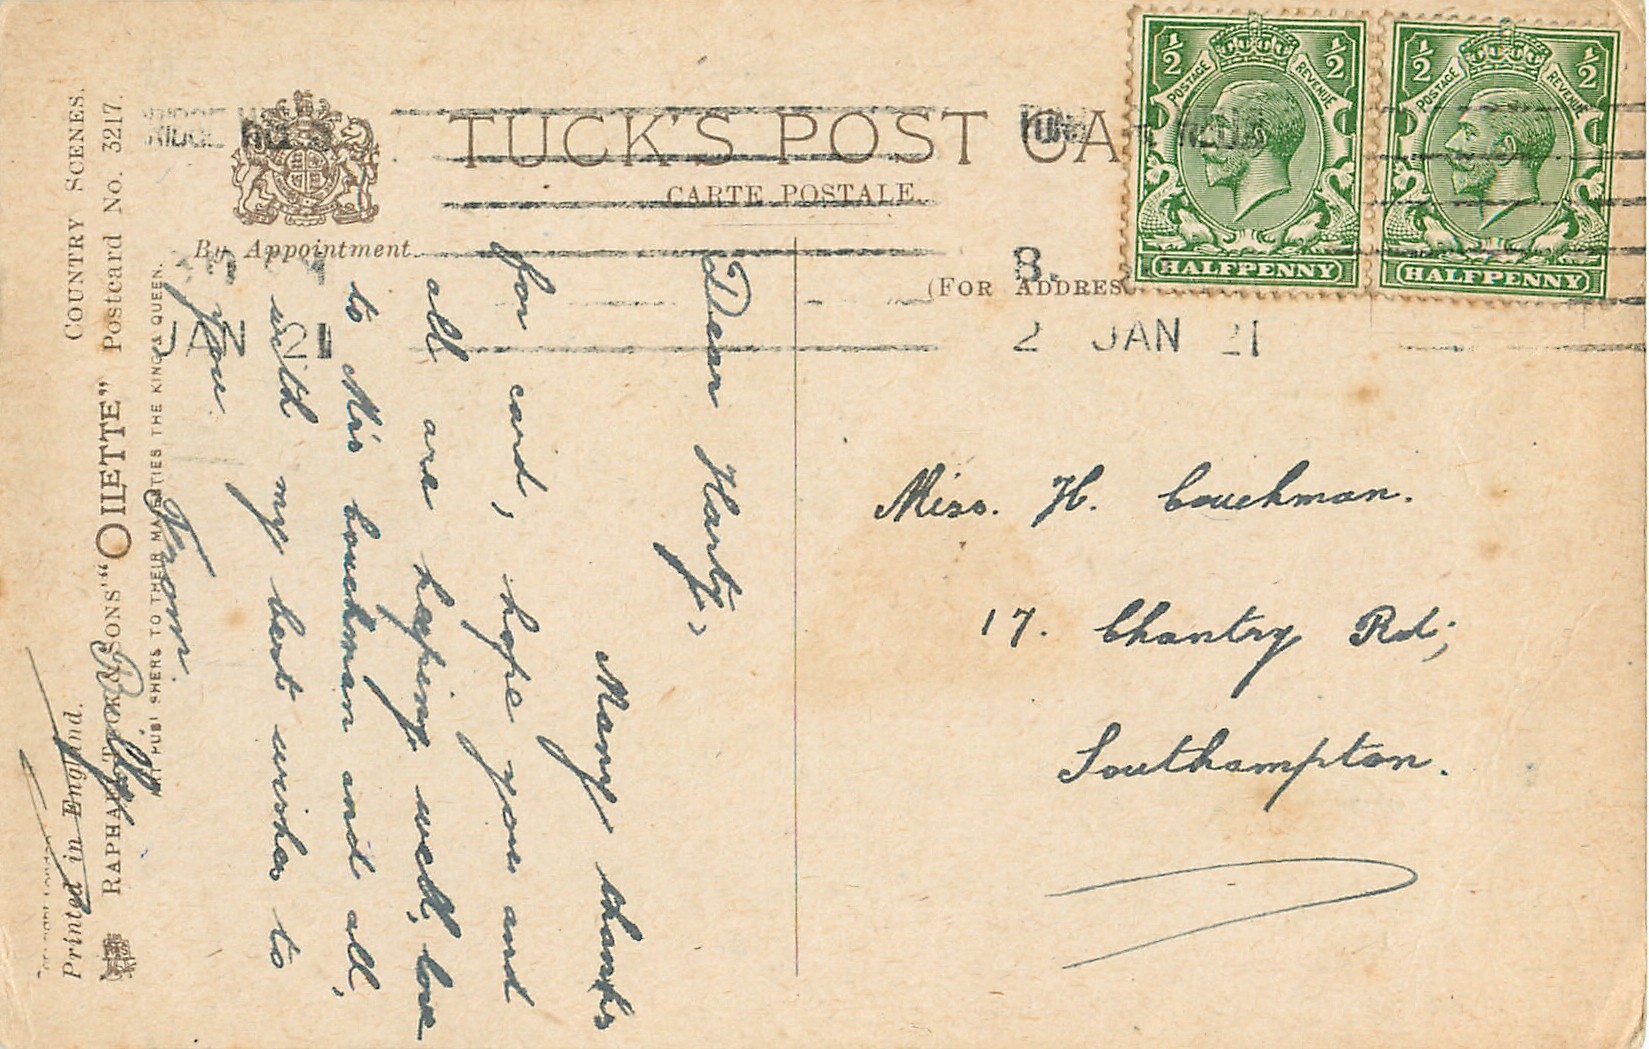 COUNTRY SCENES.
"OILETTE" Postcard No. 3217.
RAPHAEL TUCK & SONS'
ART PUBLISHERS TO THEIR MAJESTIES THE KING & QUEEN.
Printed in England.
By Appointment.
TUCK'S POST CA
CARTE POSTALE.
(FOR ADDRES
JAN 21
8.
2 JAN 21
½ ½
POSTAGE REVENUE
HALFPENNY
½ ½
POSTAGE REVENUE
HALFPENNY
Dear Harty,
Many thanks
for card, hope you and
all are keeping well, love
to Mis Couchman and all,
with my best wishes to
you
From.
Miss. H. Couchman.
17. Chantry Rd;
Southampton.